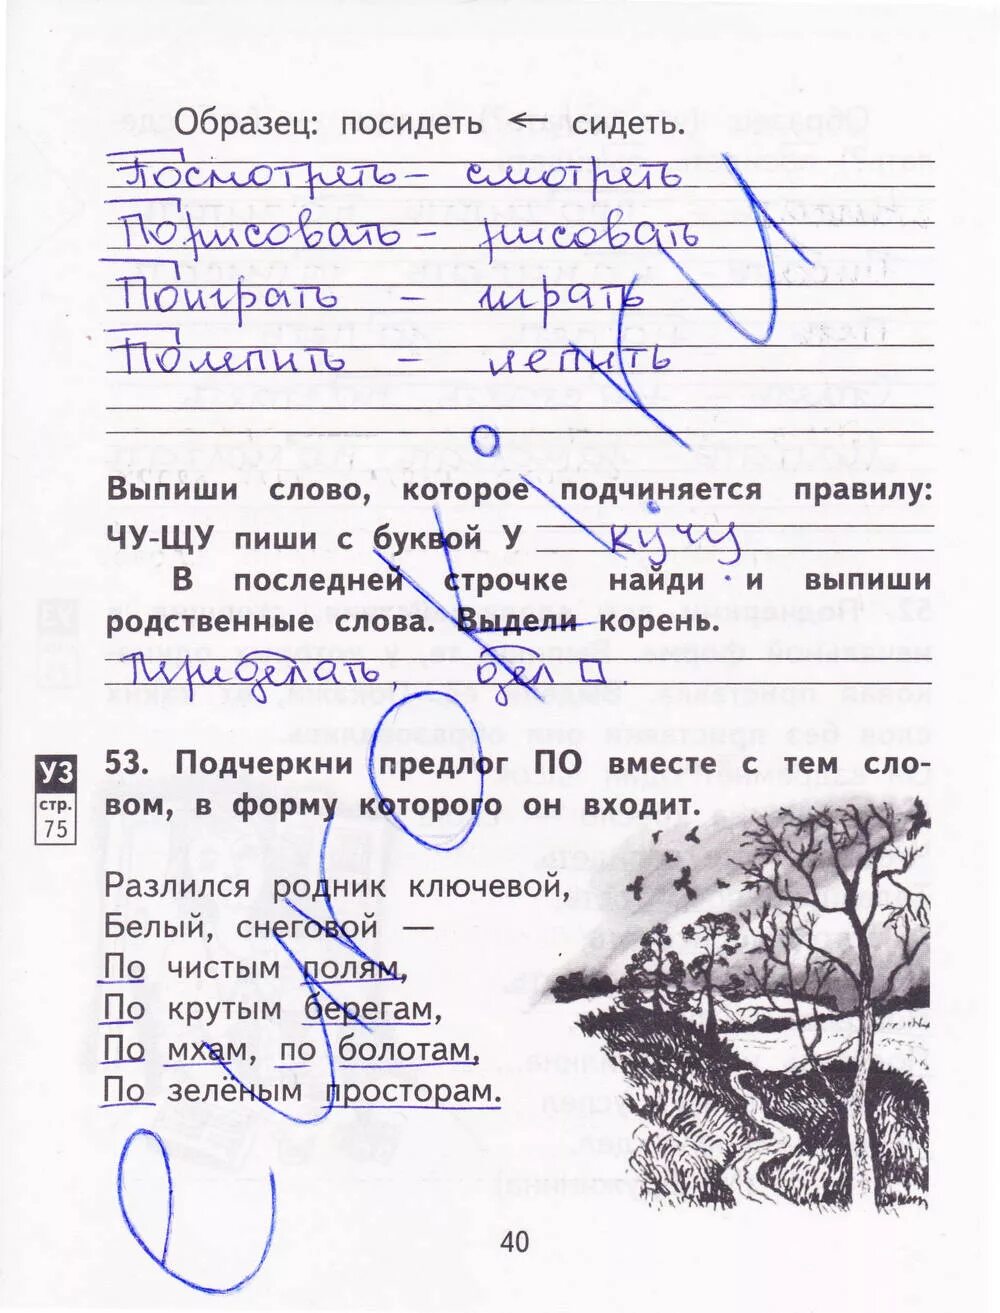 Образец: посидеть ← сидеть.
Посмотреть – смотреть
Порисовать – рисовать
Поиграть – играть
Полепить – лепить
Выпиши слово, которое подчиняется правилу:
ЧУ-ЩУ пиши с буквой У кучу
В последней строчке найди и выпиши
родственные слова. Выдели корень.
Переделать, дел
53. Подчеркни предлог ПО вместе с тем сло-
вом, в форму которого он входит.
УЗ
стр.
75
Разлился родник ключевой,
Белый, снеговой —
По чистым полям,
По крутым берегам,
По мхам, по болотам,
По зелёным просторам.
40